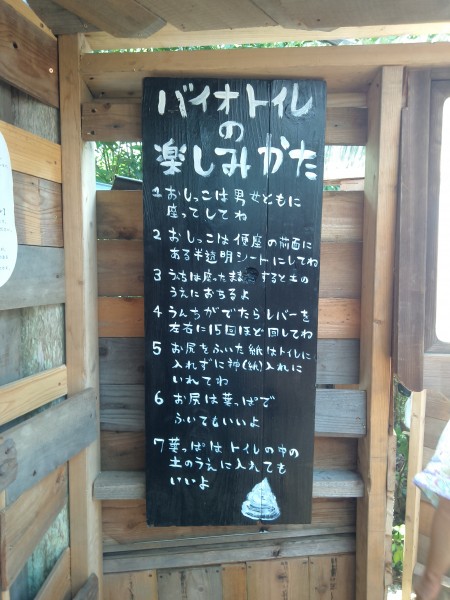 バイオトイレ
の
楽しみかた
1 おしっこは男女ともに
座ってしてね
2 おしっこは便座の前面に
ある半透明シートにしてね
3 うちは座ったまますると土の
うえにおちるよ
4 うんちがでたらレバーを
左右に15回ほど回してね
5 お尻をふいた紙はトイレに
入れずに神(紙)入れに
いれてね
6 お尻は葉っぱで
ふいてもいいよ
7 葉っぱはトイレの中の
土のうえに入れても
いいよ